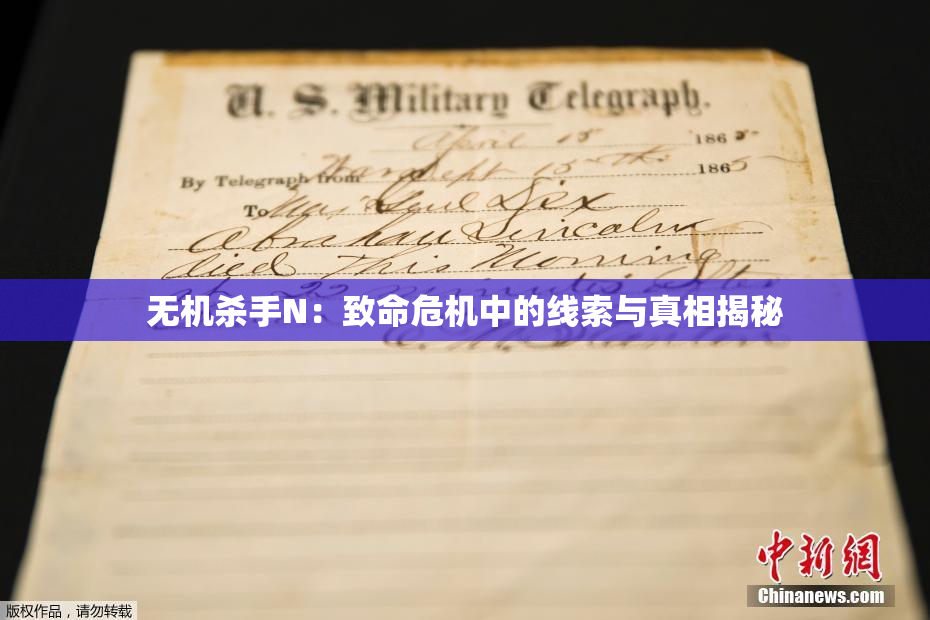 U. S. Military Telegraph.
April 15 1865
By Telegraph from War Dept 15th 1865
To Maj Genl Dix
Abraham Lincoln
died This Morning
at 22 minutes after
无机杀手N：致命危机中的线索与真相揭秘
E. M. Stanton
中新網
Chinanews.com
版权作品，请勿转载